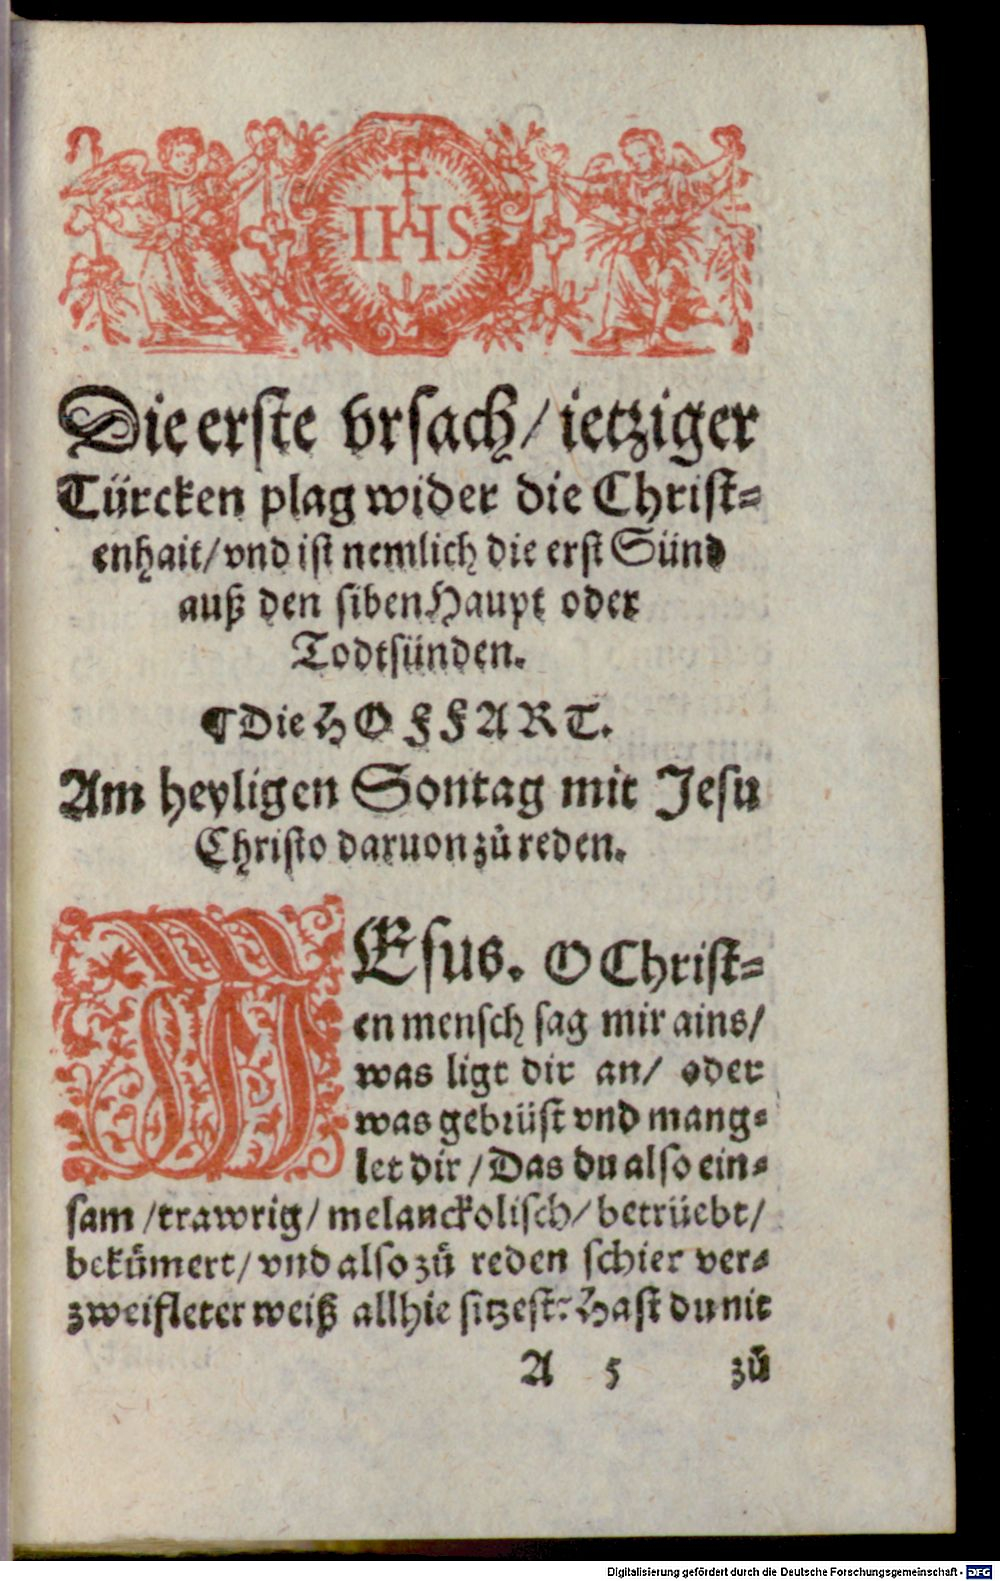 IHS
Die erste vrsach/ ietziger
Türcken plag wider die Christ=
enhait/ vnd ist nemlich die erst Sünd
auß den siben Haupt oder
Todtsünden.
¶ Die HOFFART.
Am heyligen Sontag mit Jesu
Christo daruon zů reden.
Esus. O Christ=
en mensch sag mir ains/
was ligt dir an/ oder
was gebrüst vnd mang=
let dir / Das du also ein=
sam / trawrig/ melanckolisch/ betrüebt/
bekům̃ert/ vnd also zů reden schier ver=
zweifleter weiß allhie sitzest: Hast du nit
A 5 zů
Digitalisierung gefördert durch die Deutsche Forschungsgemeinschaft - DFG